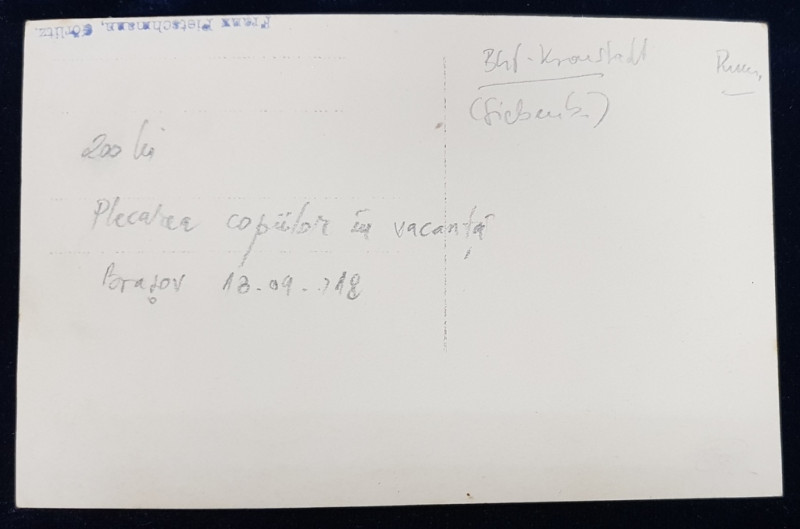 Franz Pietschmann, Görlitz.
Bhf. Kronstadt
(Siebenb.)
200 lei
Plecarea copiilor în vacanță
Brașov 13.09.